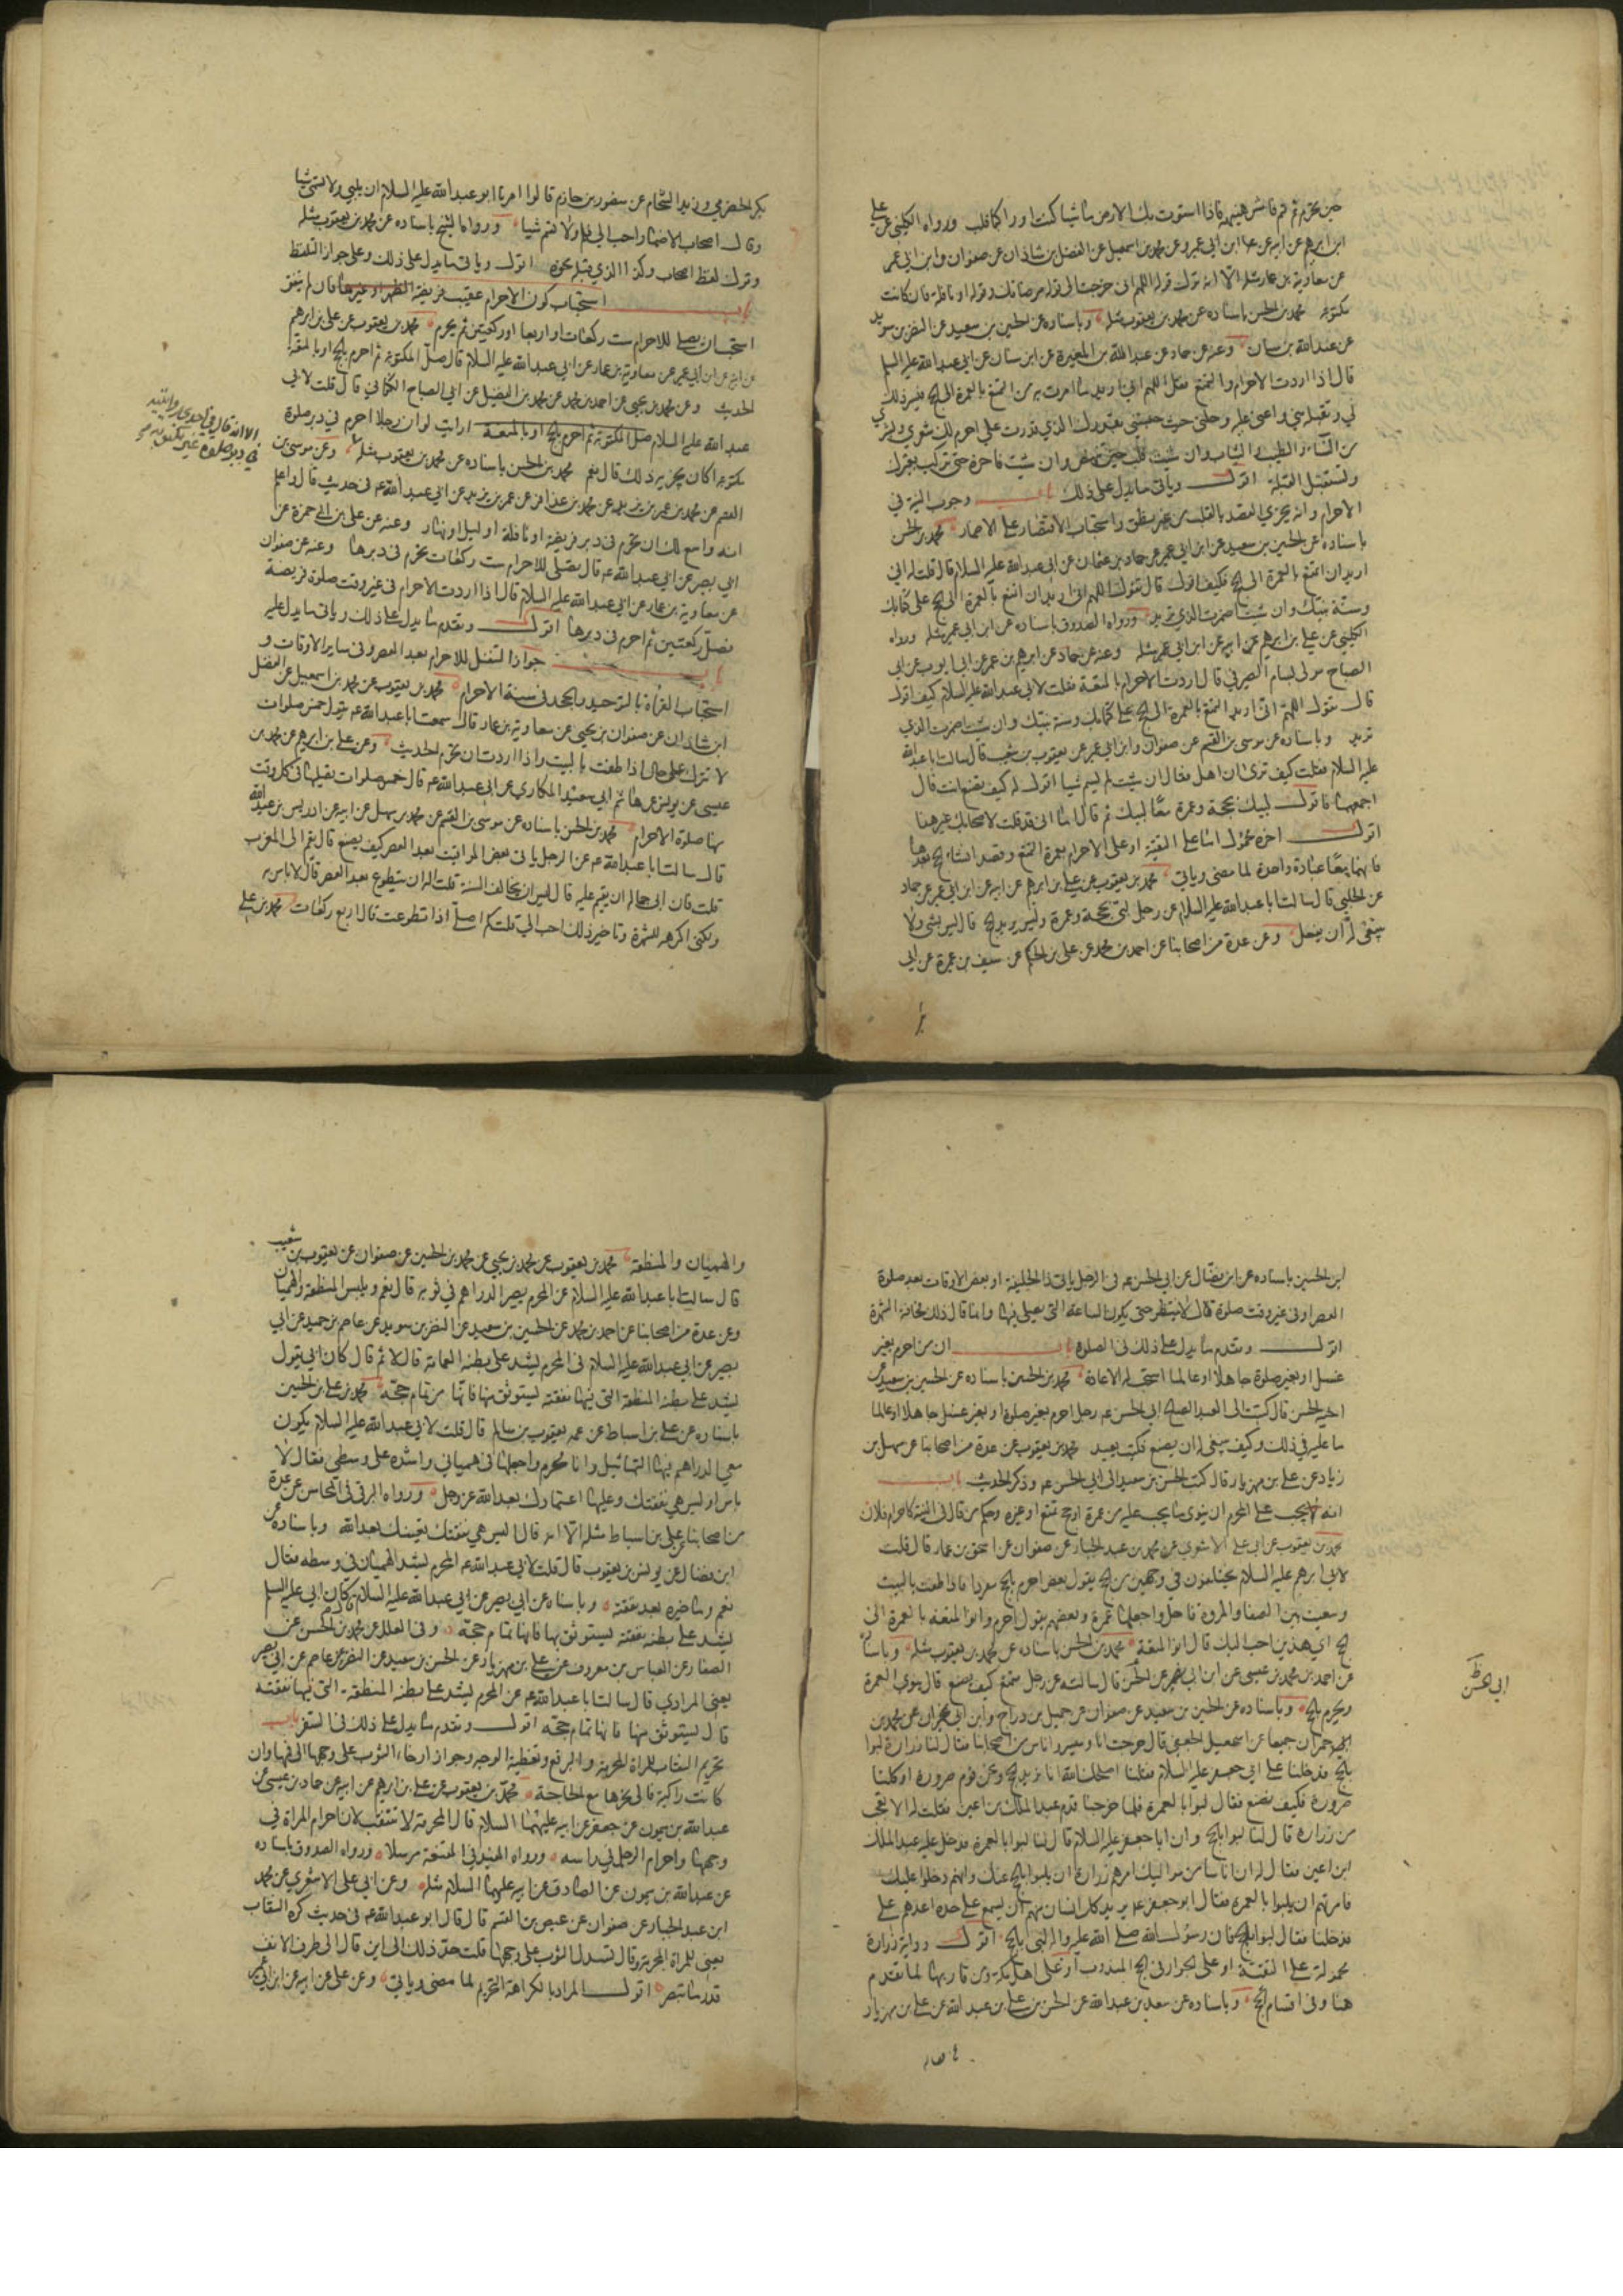 حين تحرم ثم قم فامش هنيهة فاذا استوت بك الارض ماشيا كنت او راكبا فلب ورواه الكليني عن علي
ابن ابرهيم عن ابيه عن ابن ابي عمير وعن محمد بن اسمعيل عن الفضل بن شاذان عن صفوان وابن ابي عمير
عن معاوية بن عمار مثله الا انه ترك قوله اللهم اني خرجت الى قوله مرضاتك وقوله او نافلة فان كانت
مكتوبة محمد بن الحسن باسناده عن محمد بن يعقوب مثله وباسناده عن الحسين بن سعيد عن النضر بن سويد
عن عبد الله بن سنان وعنه عن حماد عن عبد الله بن المغيرة عن ابن سنان عن ابي عبد الله عليه السلم
قال اذا اردت الاحرام والتمتع فقل اللهم اني اريد ما امرت به من التمتع بالعمرة الى الحج فيسر ذلك
لي وتقبله مني واعني عليه وحلني حيث حبستني بقدرك الذي قدرت علي احرم لك شعري وبشري
من النساء والطيب والثياب وان شئت فلب حين تنهض وان شئت فاخره حتى تركب بعيرك
وتستقبل القبلة اقول وياتي ما يدل على ذلك باب وجوب النية في
الاحرام وانه يجزي القصد بالقلب من غير نطق واستحباب الاقتصار على الاضمار محمد بن الحسن
باسناده عن الحسين بن سعيد عن ابن ابي عمير عن حماد بن عثمان عن ابي عبد الله عليه السلام قال قلت له اني
اريد ان اتمتع بالعمرة الى الحج فكيف اقول قال تقول اللهم اني اريد ان اتمتع بالعمرة الى الحج على كتابك
وسنة نبيك وان شئت اضمرت الذي تريد ورواه الصدوق باسناده عن ابن ابي عمير مثله ورواه
الكليني عن علي بن ابرهيم عن ابيه عن ابن ابي عمير مثله وعنه عن حماد عن ابرهيم بن عمر عن ابي ايوب عن ابي
الصباح مولى بسام الصيرفي قال اردت الاحرام بالمتعة فقلت لابي عبد الله عليه السلام كيف اقول
قال تقول اللهم اني اريد التمتع بالعمرة الى الحج على كتابك وسنة نبيك وان شئت اضمرت الذي
تريد وباسناده عن موسى بن القسم عن صفوان وابن ابي عمير عن يعقوب بن شعيب قال سالت ابا عبد الله
عليه السلام فقلت كيف ترى ان اهل فقال ان شئت لم تسم شيئا اقول له كيف تصنع انت قال
اجمعهما فاقول لبيك بحجة وعمرة معا لبيك ثم قال اما اني قد قلت لاصحابك غير هذا
اقول اخره محمول اما على التقية او على الاحرام بعمرة التمتع وقصد انشاء الحج بعدها
فانهما معا عبادة واحدة لما مضى وياتي محمد بن يعقوب عن علي بن ابرهيم عن ابيه عن ابن ابي عمير عن حماد
عن الحلبي قال سالت ابا عبد الله عليه السلام عن رجل لبى بحجة وعمرة وليس يريد الحج قال ليس بشي ولا
ينبغي له ان يفعل وعن عدة من اصحابنا عن احمد بن محمد عن علي بن الحكم عن سيف بن عميرة عن ابي
بكر الحضرمي وزيد الشحام عن منصور بن حازم قالوا امرنا ابو عبد الله عليه السلام ان نلبي ولا نسمي شيئا
وقال اصحاب الاضمار احب الي ولا تسم شيئا ورواه الشيخ باسناده عن محمد بن يعقوب مثله
وترك لفظ اصحاب وكذا الذي قبله نحوه اقول وياتي ما يدل على ذلك وعلى جواز التلفظ
باب استحباب كون الاحرام عقيب فريضة الظهر او غيرها فان لم يتفق
استحب ان يصلي للاحرام ست ركعات او اربعا او ركعتين ثم يحرم محمد بن يعقوب عن علي بن ابرهيم
عن ابيه عن ابن ابي عمير عن معاوية بن عمار عن ابي عبد الله عليه السلام قال صل المكتوبة ثم احرم بالحج او بالمتعة
الحديث وعن محمد بن يحيى عن احمد بن محمد عن محمد بن الفضيل عن ابي الصباح الكناني قال قلت لابي
عبد الله عليه السلام صل المكتوبة ثم احرم بالحج او بالمتعة ارايت لو ان رجلا احرم في دبر صلوة
مكتوبة اكان يجزيه ذلك قال نعم محمد بن الحسن باسناده عن محمد بن يعقوب مثله وعن موسى بن
القسم عن محمد بن عمر بن يزيد عن محمد بن عذافر عن عمر بن يزيد عن ابي عبد الله عم في حديث قال واعلم
انه واسع لك ان تحرم في دبر فريضة او نافلة او ليل او نهار وعنه عن علي بن ابي حمزة عن
ابي بصير عن ابي عبد الله عم قال تصلي للاحرام ست ركعات تحرم في دبرها وعنه عن صفوان
عن معاوية بن عمار عن ابي عبد الله عليه السلام قال اذا اردت الاحرام في غير وقت صلوة فريضة
فصل ركعتين ثم احرم في دبرها اقول وتقدم ما يدل على ذلك وياتي ما يدل عليه
باب جواز التنفل للاحرام بعد العصر وفي ساير الاوقات و
استحباب القراءة بالتوحيد والجحد في سنة الاحرام محمد بن يعقوب عن محمد بن اسمعيل عن الفضل
ابن شاذان عن صفوان بن يحيى عن معاوية بن عمار قال سمعت ابا عبد الله عم يقول خمس صلوات
لا تترك على حال اذا طفت بالبيت واذا اردت ان تحرم الحديث وعن علي بن ابرهيم عن محمد بن
عيسى عن يونس عن هاشم ابي سعيد المكاري عن ابي عبد الله عم قال خمس صلوات تصليها في كل وقت
منها صلوة الاحرام محمد بن الحسن باسناده عن موسى بن القسم عن محمد بن سهل عن ابيه عن ادريس بن عبد الله
قال سالت ابا عبد الله عم عن الرجل ياتي بعض المواقيت بعد العصر كيف يصنع قال يقيم الى المغرب
قلت فان ابى جماله ان يقيم عليه قال ليس له ان يخالف السنة قلت اله ان يتطوع بعد العصر قال لا باس به
ولكني اكرهه للشهرة وتاخير ذلك احب الي قلت كم اصلي اذا تطوعت قال اربع ركعات محمد بن علي
ابن الحسين باسناده عن ابن فضال عن ابي الحسن عم في الرجل ياتي ذا الحليفة او بعض الاوقات بعد صلوة
العصر او في غير وقت صلوة قال لا ينتظر حتى يكون الساعة التي يصلي فيها وانما قال ذلك مخافة الشهرة
اقول وتقدم ما يدل على ذلك في الصلوة باب ان من احرم بغير
غسل او بغير صلوة جاهلا او عالما استحب له الاعادة محمد بن الحسن باسناده عن الحسين بن سعيد عن
اخيه الحسن قال كتبت الى العبد الصالح ابي الحسن عم رجل احرم بغير صلوة او بغير غسل جاهلا او عالما
ما عليه في ذلك وكيف ينبغي له ان يصنع فكتب يعيد محمد بن يعقوب عن عدة من اصحابنا عن سهل بن
زياد عن علي بن مهزيار قال كتب الحسن بن سعيد الى ابي الحسن عم وذكر الحديث باب
انه يجب على المحرم ان ينوي ما يجب عليه من عمرة او حج تمتع او غيره وحكم من قال في النية كاحرام فلان
محمد بن يعقوب عن ابي علي الاشعري عن محمد بن عبد الجبار عن صفوان عن اسحق بن عمار قال قلت
لابي ابرهيم عليه السلام يختلفون في وجهين من الحج يقول بعض احرم بالحج مفردا فاذا طفت بالبيت
وسعيت بين الصفا والمروة فاحل واجعلها عمرة وبعضهم يقول احرم وانو المتعة بالعمرة الى
الحج اي هذين احب اليك قال انو المتعة محمد بن الحسن باسناده عن محمد بن يعقوب مثله وباسناده
عن احمد بن محمد بن عيسى عن ابن ابي نصر عن ابي الحسن قال سالته عن رجل متمتع كيف يصنع قال ينوي العمرة
ابي الحسن ظ
ويحرم بالحج وباسناده عن الحسين بن سعيد عن صفوان عن جميل بن دراج وابن ابي نجران عن محمد بن
حمران جميعا عن اسمعيل الجعفي قال خرجت انا وميسر واناس من اصحابنا فقال لنا زرارة لبوا
بالحج فدخلنا على ابي جعفر عليه السلام فقلنا اصلحك الله انا نريد الحج ونحن قوم صرورة او كلنا
صرورة فكيف نصنع فقال لبوا بالعمرة فلما خرجنا قدم عبد الملك بن اعين فقلت له الا تعجب
من زرارة قال لنا لبوا بالحج وان ابا جعفر عليه السلام قال لنا لبوا بالعمرة فدخل عليه عبد الملك
ابن اعين فقال له ان اناسا من مواليك امرهم زرارة ان يلبوا بالحج عنك وانهم دخلوا عليك
فامرتهم ان يلبوا بالعمرة فقال ابو جعفر عم يريد كل انسان منهم ان يسمع على حدة اعدهم علي
فدخلنا فقال لبوا بالحج فان رسول الله صلى الله عليه واله لبى بالحج اقول رواية زرارة
محمولة على التقية او على الجواز في الحج المندوب او على اهل مكة ومن قاربها لما تقدم
هنا وفي اقسام الحج وباسناده عن سعد بن عبد الله عن الحسن بن علي بن عبد الله عن علي بن مهزيار
والهميان والمنطقة محمد بن يعقوب عن محمد بن يحيى عن محمد بن الحسين عن صفوان عن يعقوب بن شعيب
قال سالت ابا عبد الله عليه السلام عن المحرم يصير الدراهم في ثوبه قال نعم ويلبس المنطقة والهميان
وعن عدة من اصحابنا عن احمد بن محمد عن الحسين بن سعيد عن النضر بن سويد عن عاصم بن حميد عن ابي
بصير عن ابي عبد الله عليه السلام في المحرم يشد على بطنه العمامة قال لا ثم قال كان ابي يقول
يشد على بطنه المنطقة التي فيها نفقته يستوثق منها فانها من تمام حجه محمد بن علي بن الحسين
باسناده عن علي بن اسباط عن عمه يعقوب بن سالم قال قلت لابي عبد الله عليه السلام يكون
معي الدراهم فيها التماثيل وانا محرم واجعلها في همياني واشده على وسطي فقال لا
باس او ليس هي نفقتك وعليها اعتمادك بعد الله عز وجل ورواه البرقي في المحاسن عن عدة
من اصحابنا عن علي بن اسباط مثله الا انه قال اليس هي نفقتك يعينك بعد الله وباسناده عن
ابن فضال عن يونس بن يعقوب قال قلت لابي عبد الله عم المحرم يشد الهميان في وسطه فقال
نعم وما خيره بعد نفقته وباسناده عن ابي بصير عن ابي عبد الله عليه السلام قال كان ابي عليه السلم
يشد على بطنه نفقته يستوثق بها فانها تمام حجة وفي العلل عن محمد بن الحسن عن
الصفار عن العباس بن معروف عن علي بن مهزيار عن الحسين بن سعيد عن النضر عن عاصم عن ابي بصير
يعني المرادي قال سالت ابا عبد الله عم عن المحرم يشد على بطنه المنطقة التي فيها نفقته
قال يستوثق منها فانها تمام حجه اقول وتقدم ما يدل على ذلك في السفر باب
تحريم النقاب للمراة المحرمة والبرقع وتغطية الوجه وجواز ارخاء الثوب على وجهها الى فمها وان
كانت راكبة فالى نحرها مع الحاجة محمد بن يعقوب عن علي بن ابرهيم عن ابيه عن حماد بن عيسى عن
عبد الله بن ميمون عن جعفر عن ابيه عليهما السلام قال المحرمة لا تتنقب لان احرام المراة في
وجهها واحرام الرجل في راسه ورواه المفيد في المقنعة مرسلا ورواه الصدوق باسناده
عن عبد الله بن ميمون عن الصادق عن ابيه عليهما السلام مثله وعن ابي علي الاشعري عن محمد
ابن عبد الجبار عن صفوان عن عيص بن القسم قال قال ابو عبد الله عم في حديث كره النقاب
يعني للمراة المحرمة وقال تسدل الثوب على وجهها قلت حد ذلك الى اين قال الى طرف الانف
قدر ما تبصر اقول المراد بالكراهة التحريم لما مضى وياتي وعن علي عن ابيه عن ابن ابي عمير